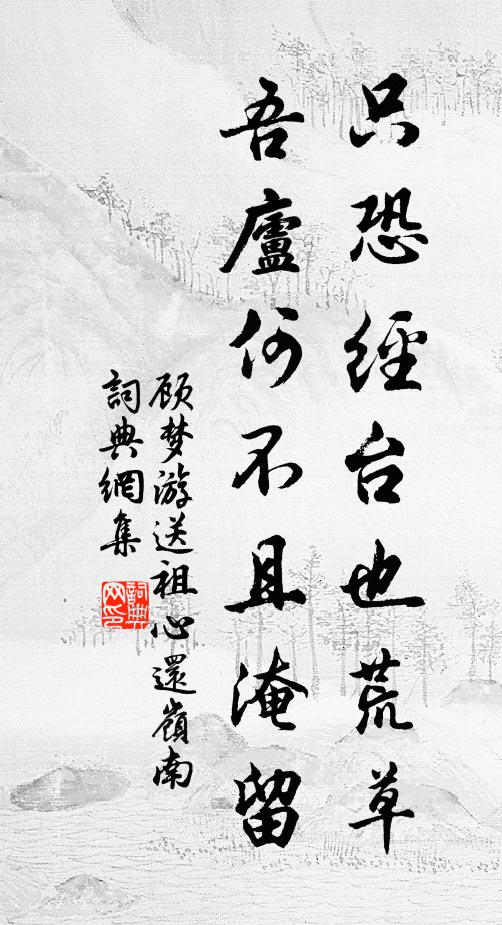 只恐經台也荒草
吾廬何不且淹留
顾梦游送祖心還嶺南
詞典網集
詞典
网印